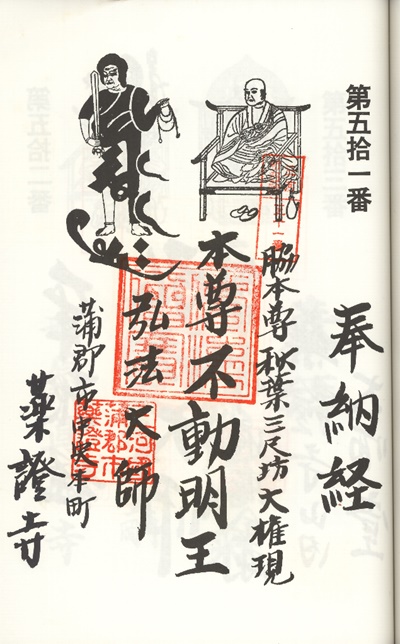 第五拾一番
奉納経
脇本尊 秋葉三尺坊大権現
本尊不動明王
弘法大師
蒲郡市中央本町
薬證寺
蒲郡市